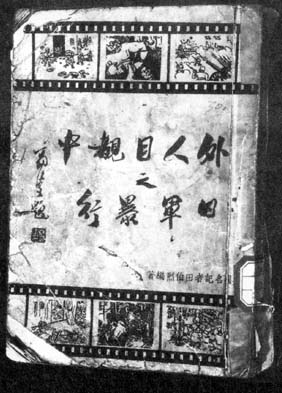 外人目覩中
之
日軍暴行
名記者田伯烈編著
題